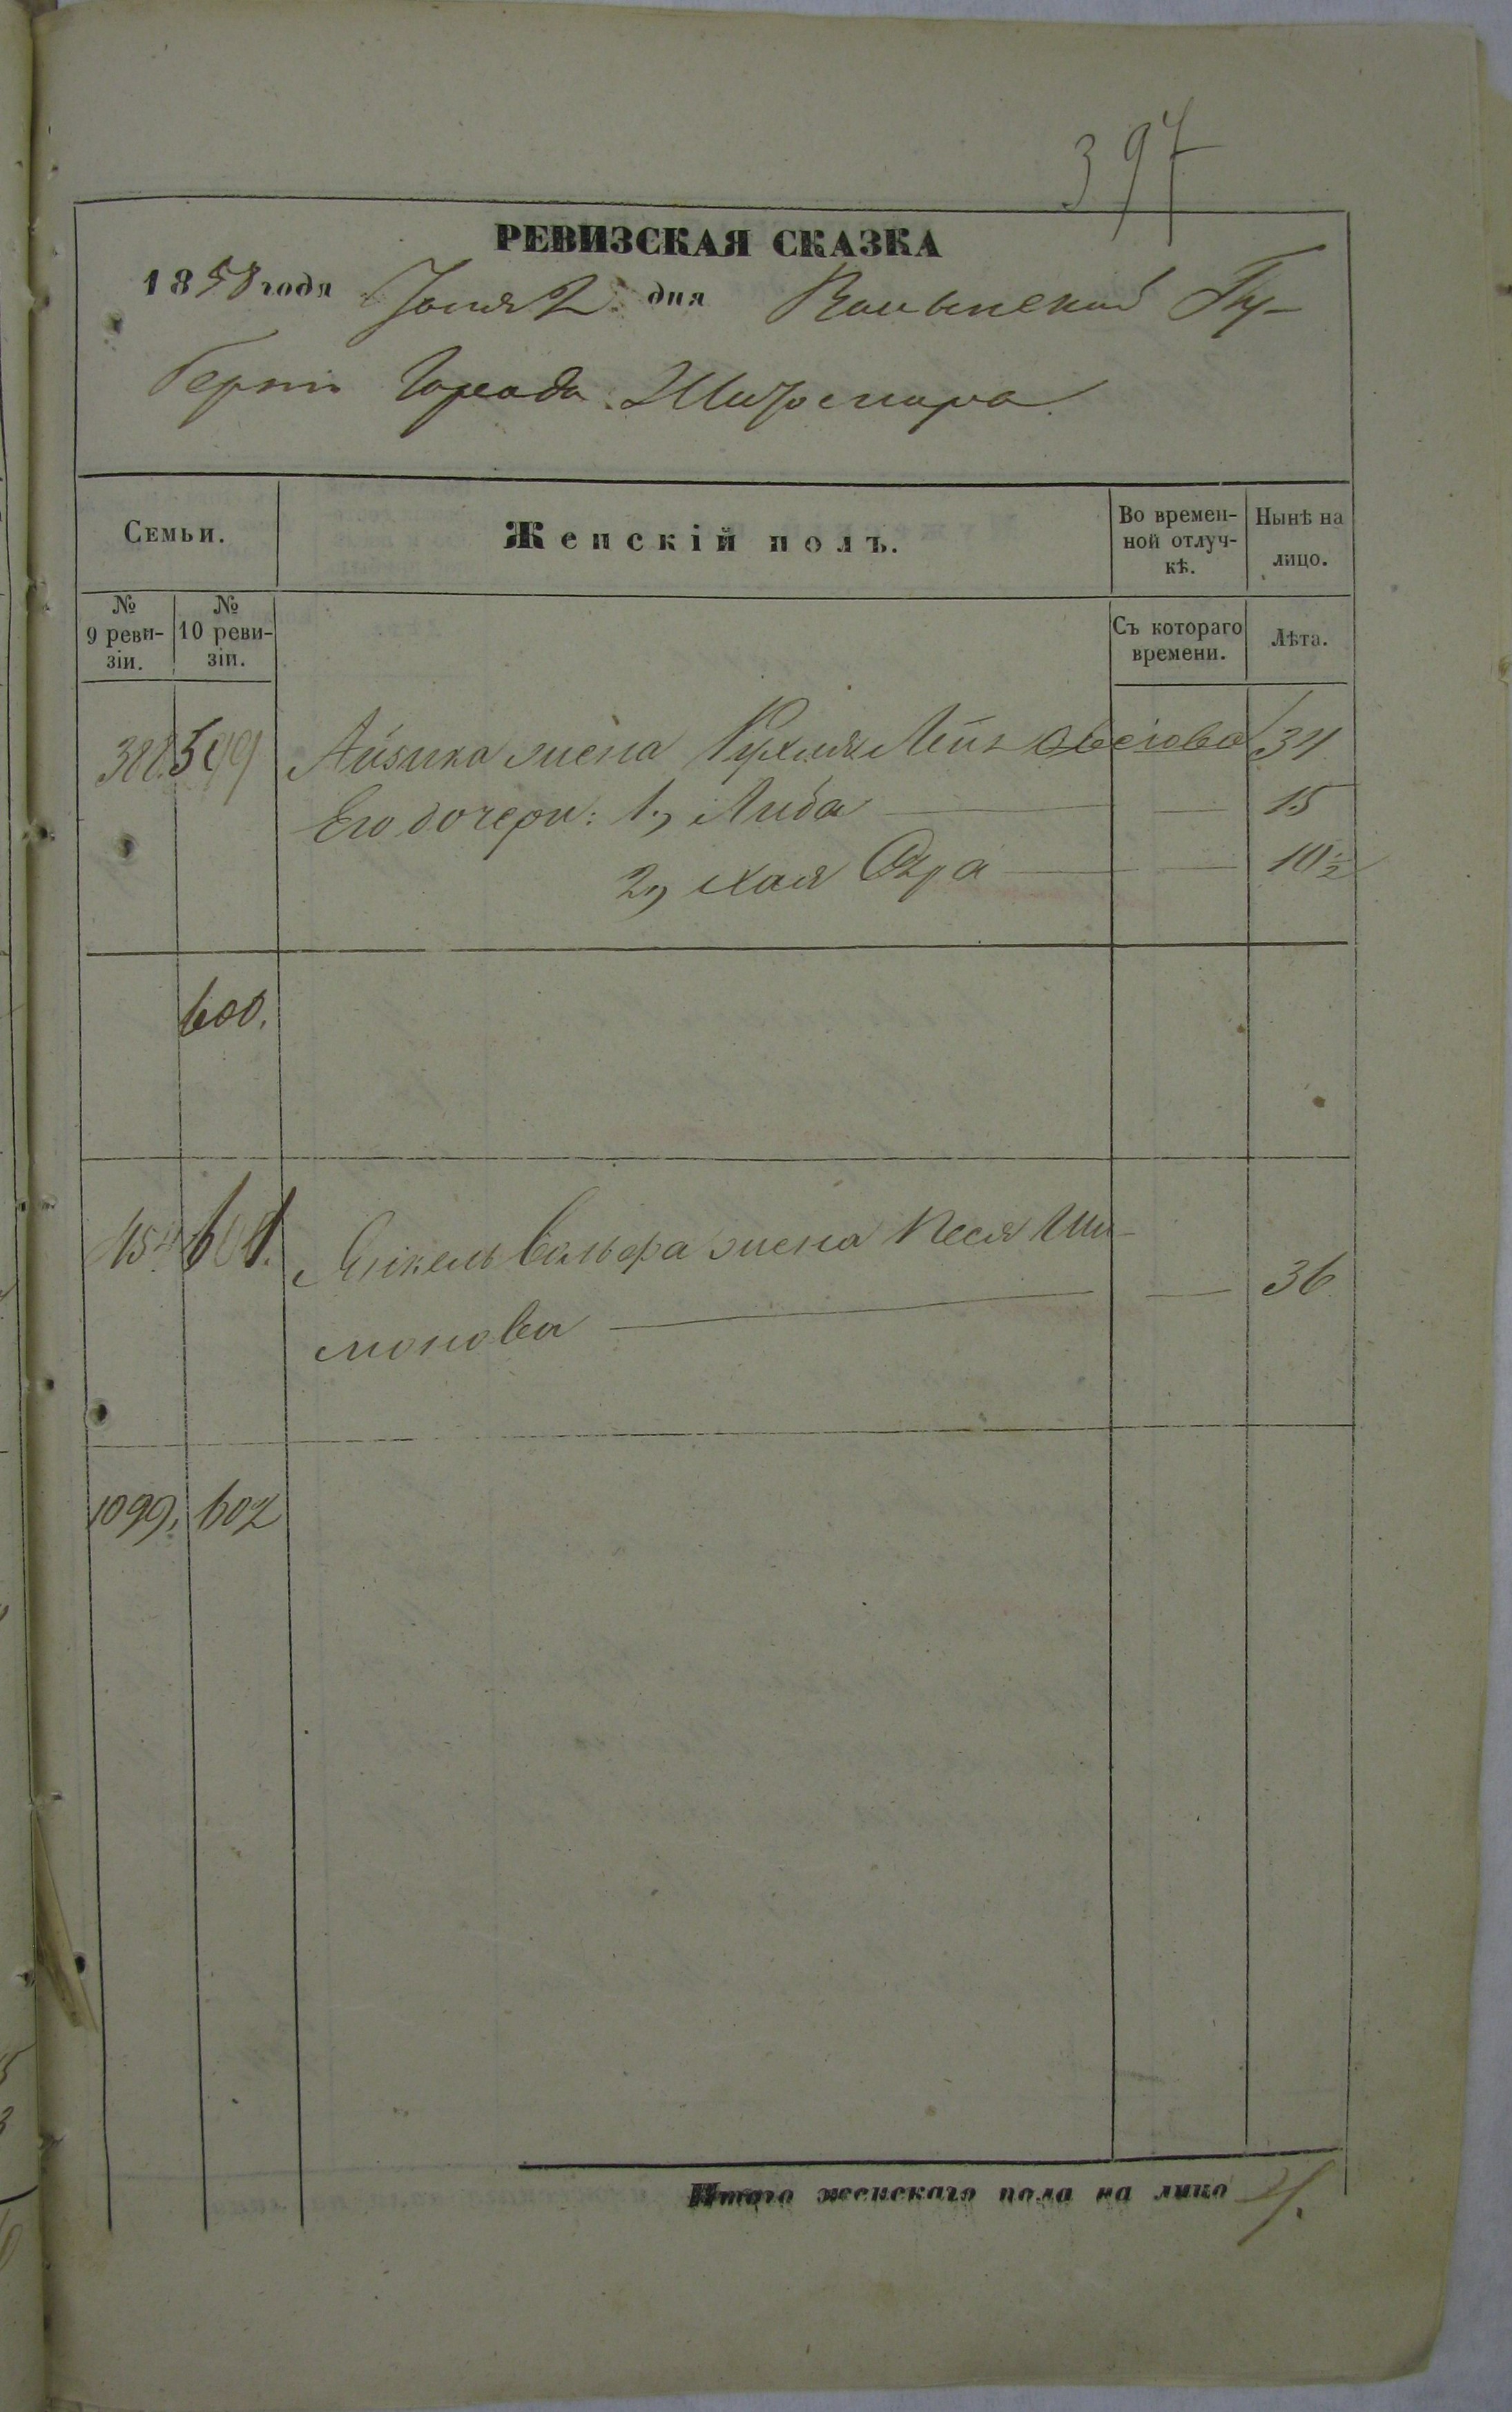 397
РЕВИЗСКАЯ СКАЗКА
1858 года Іюня 2 дня Волынской Гу-
берніи Города Житомира
Семьи.
Женскій полъ.
Во времен-
ной отлуч-
кѣ.
Нынѣ на
лицо.
№
9 реви-
зіи.
№
10 реви-
зіи.
Съ котораго
времени.
Лѣта.
599 Айзика жена Рухля 34
Его дочери: 1, Либа — — 15
2, Хая Сура — — 10½
600.
601. Янкель Вольфа жена Песя Ши-
монова — — 36
1099, 602
Итого женскаго пола на лицо 4.